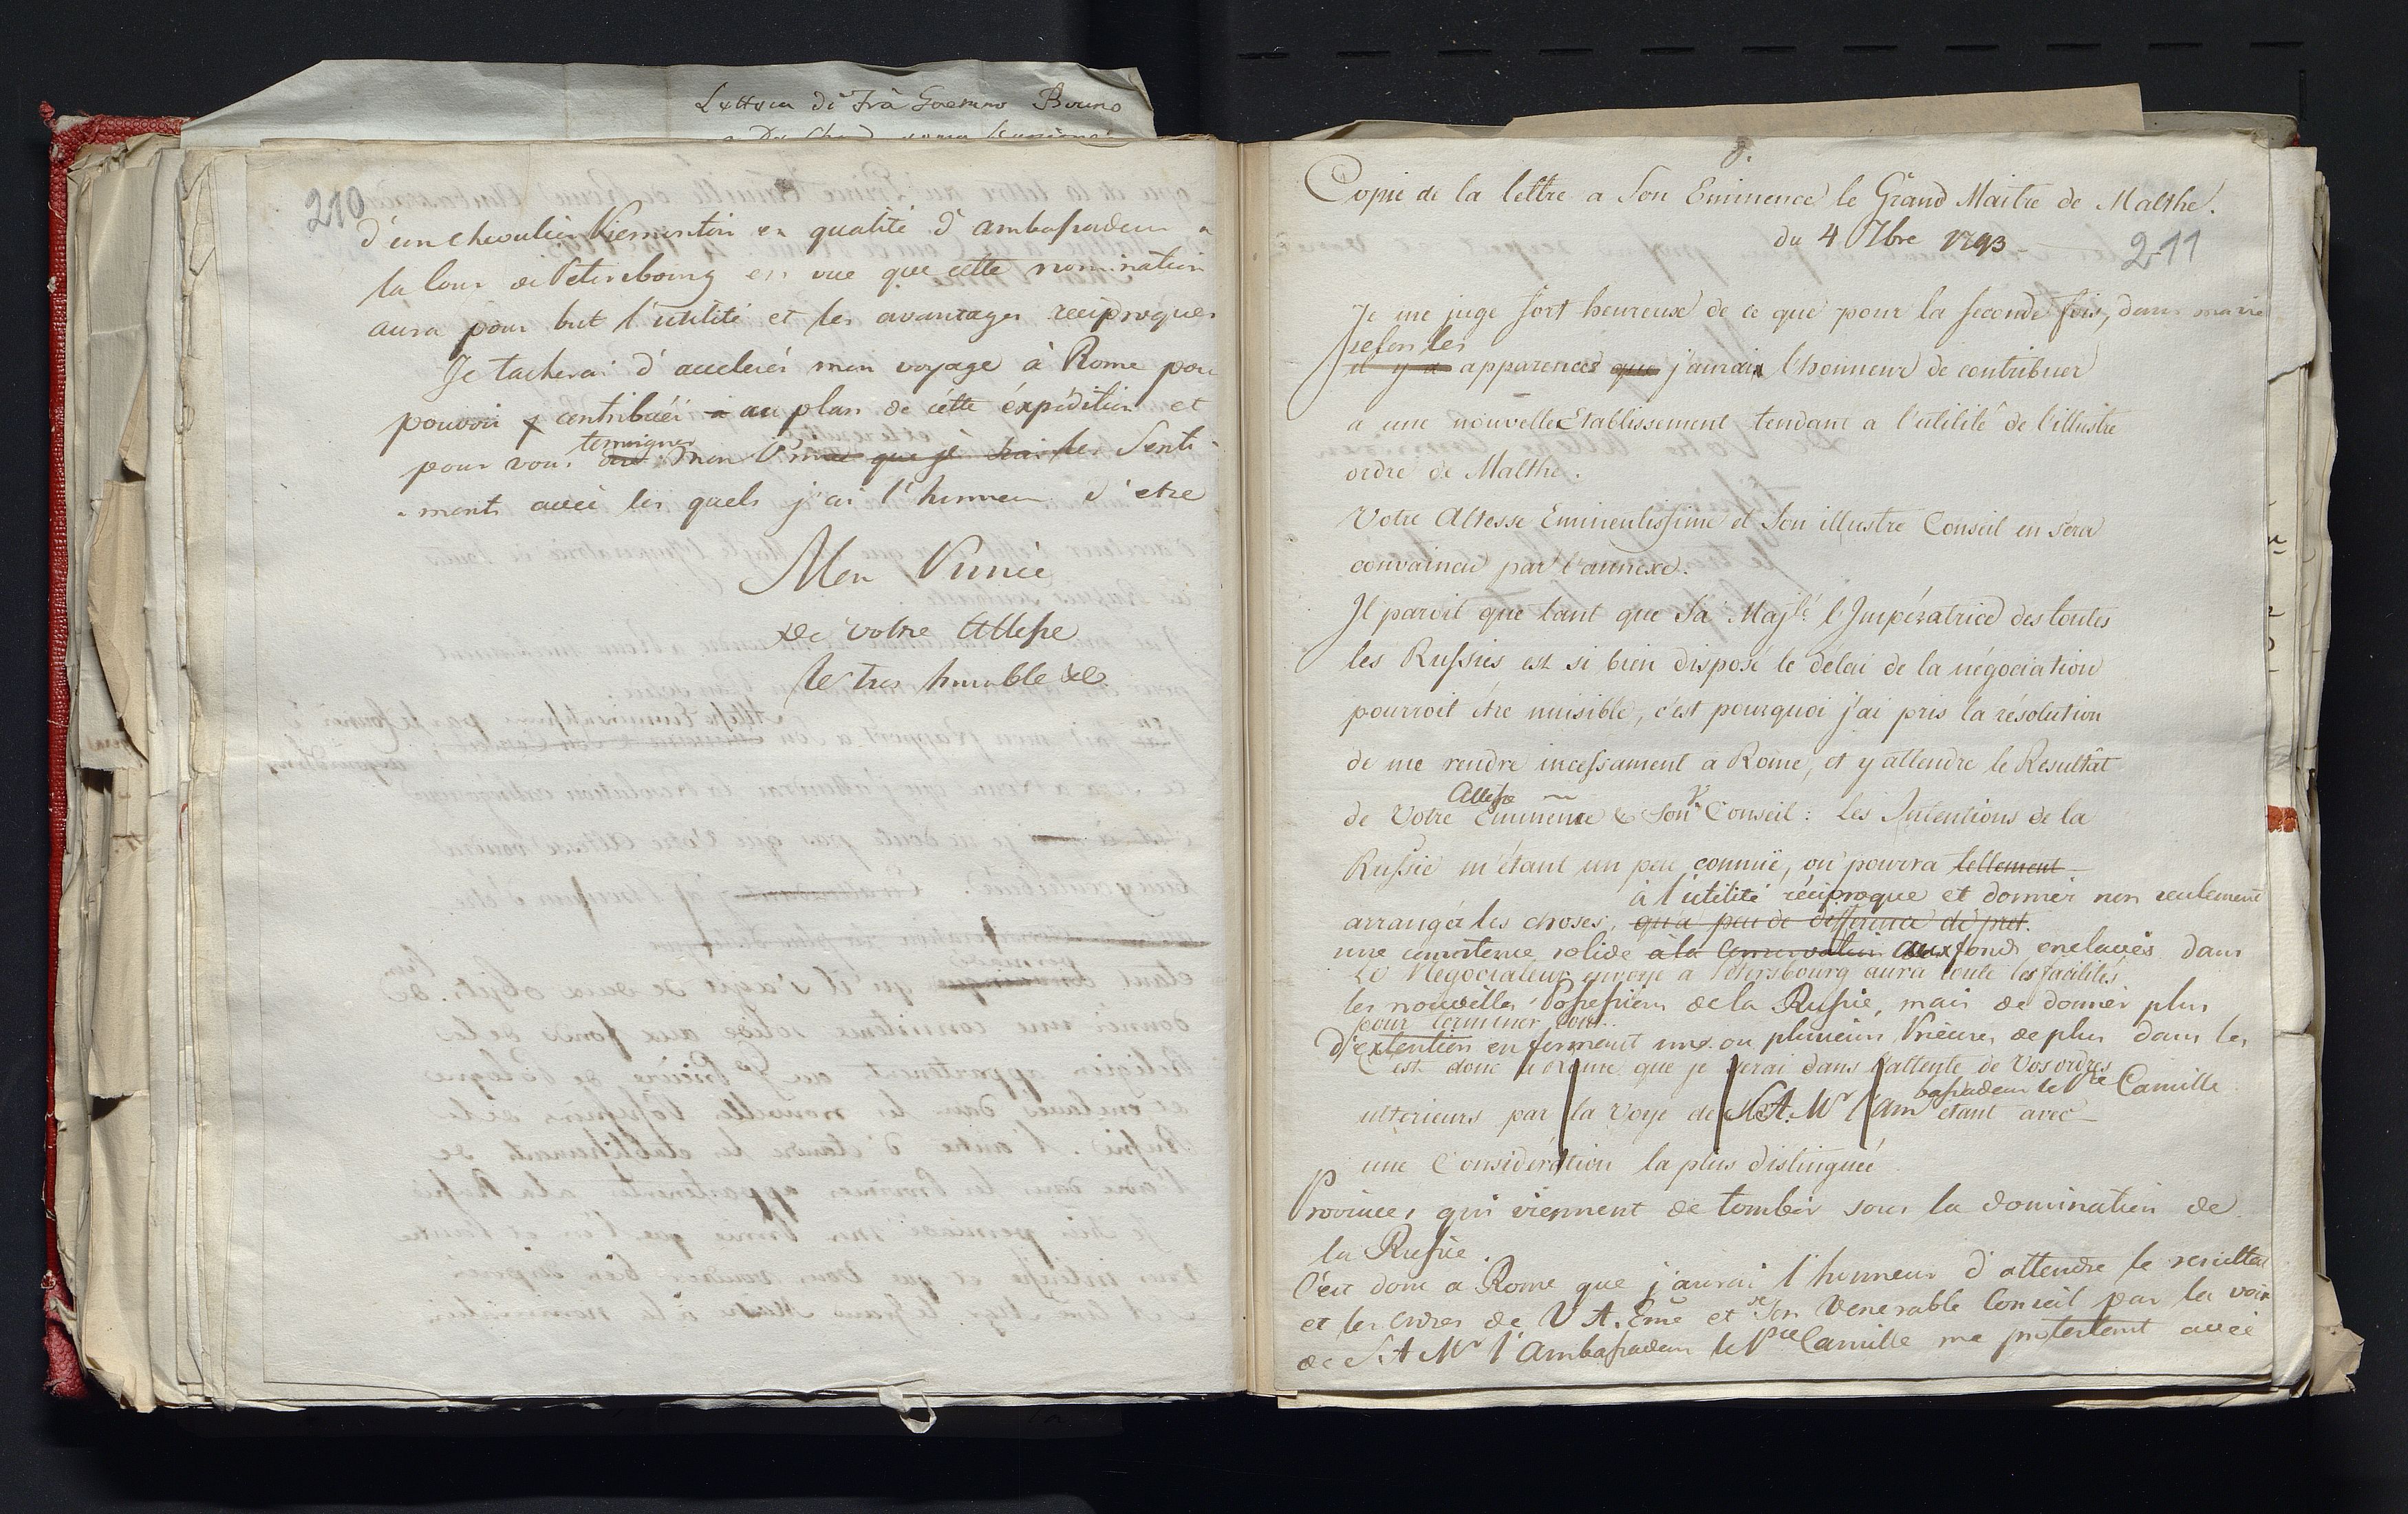 Lettera di Frà Gaetano Bruno
210
d'un chevalier Piemontois en qualité d'ambassadeur a
la Cour de Petersbourg en vue que cette nomination
aura pour but l'utilité et les avantages reciproques
Je tacherai d'accelerér mon voyage à Rome pour
pouvoir y contribuéi a au plan de cette éxpédition et
temoigner
pour vous mon Pce que je les Senti
-ments avec les quels j'ai l'honneur d'etre
Mon Prince
de votre Altesse
le tres humble &c
Copie de la lettre a Son Eminence le Grand Maitre de Malthe.
du 4 7bre 1793
211
Je me juge fort heureux de ce que pour la seconde fois, dans ma vie
selon les
il y a apparences que j'aurais l'honneur de contribuer
a une nouvelle Etablissement tendant a l'utilité de l'illustre
ordre de Malthe.
Votre Altesse Eminentissime et Son illustre Conseil en sera
convaincu par l'annexe.
Il paroit que tant que Sa Majté l'Impératrice des toutes
les Russies est si bien disposé le délai de la négociation
pourroit être nuisible, c'est pourquoi j'ai pris la résolution
de me rendre incessament a Rome, et y attendre le Resultat
Altesse
de Votre Eminence & Son Conseil: les Intentions de la
Russie m'étant un peu connüe, on pourra tellement
à l'utilité réciproque et donner non seulement
arranger les choses, qu'a peu de difference de pret.
une consistence solide à la conservation aux fonds enclavés dans
Le Negociateur envoyé a Petersbourg aura toute les facilités
les nouvelles Possessions de la Russie, mais de donner plus
pour terminer tout.
d'extention en formant une ou plusieurs Prieurés de plus dans les
C'est donc a Rome que je serai dans l'attente de Vos ordres
bassadeur le Pce Camille
ulterieurs par la voye de S. A. Mr l'Am étant avec
une Considération la plus distinguée
Provinces qui viennent de tomber sous la domination de
la Russie.
C'est donc a Rome que j'aurai l'honneur d'attendre le resultat
et les ordres de V. A. Eme et de Son Venerable Conseil par la voie
de S. A Mr l'Ambassadeur le Pce Camille me protestant avec